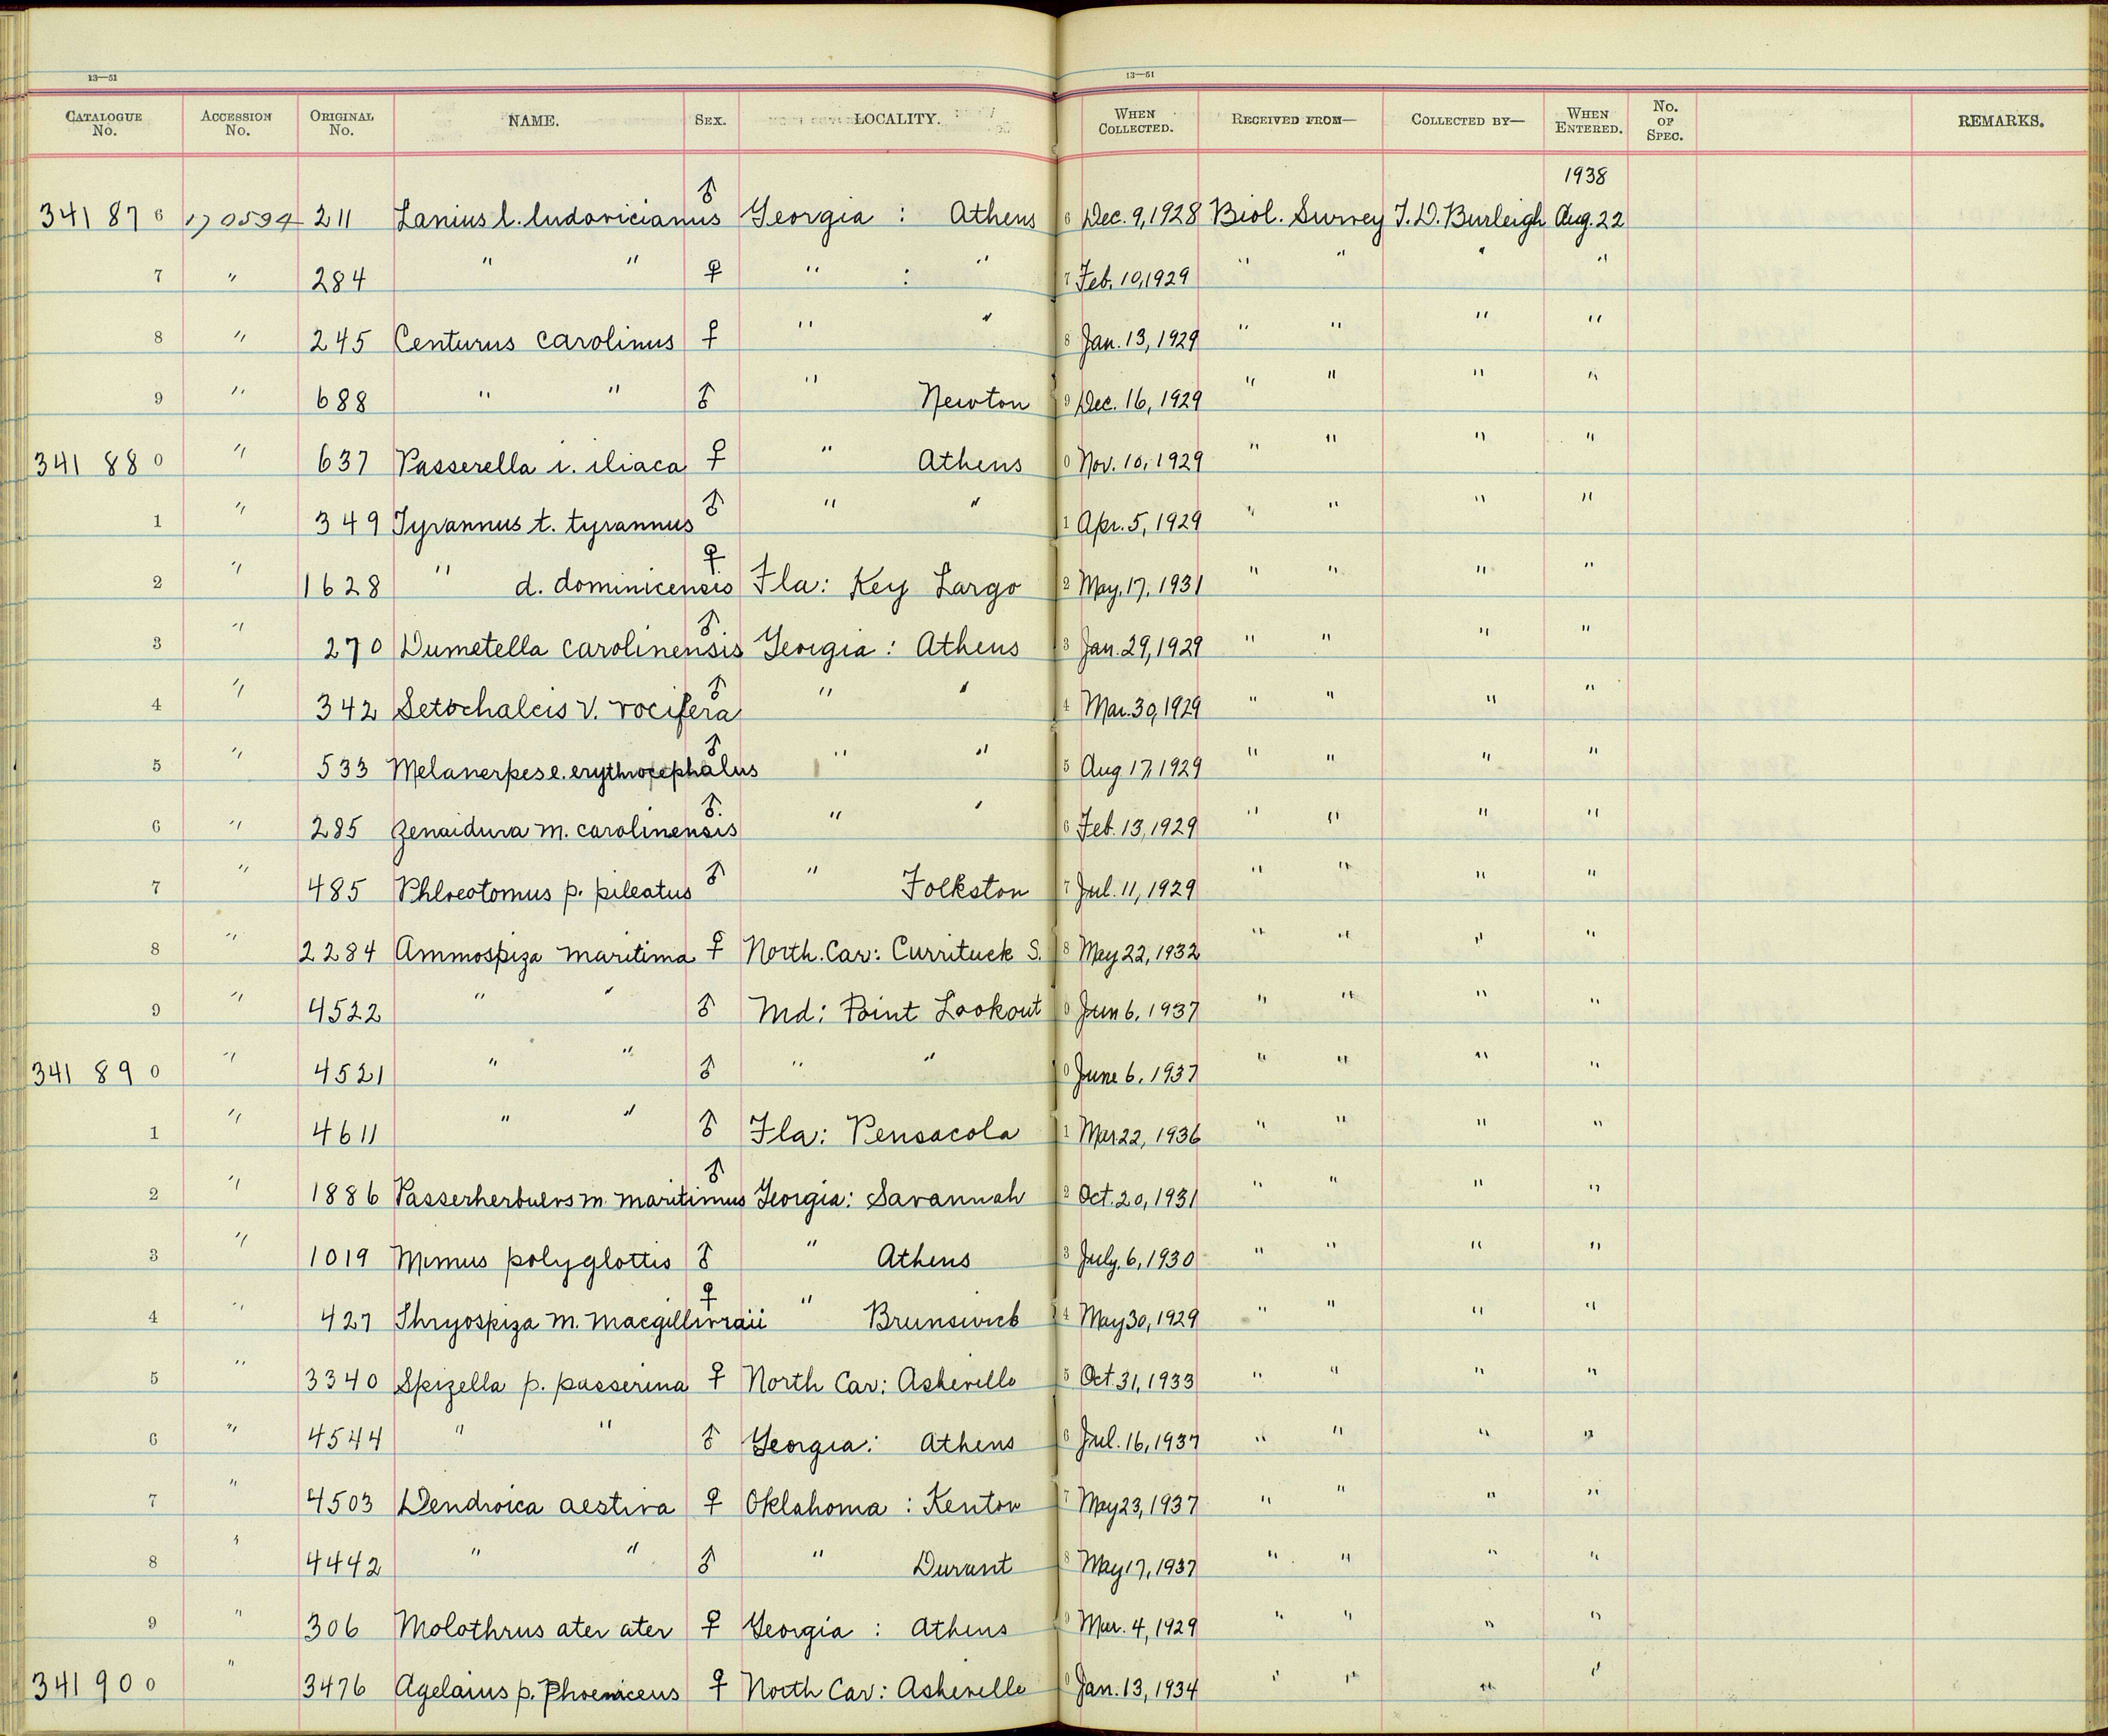 13—51 13—51
CATALOGUE No. ACCESSION No. ORIGINAL No. NAME. SEX. LOCALITY. WHEN COLLECTED. RECEIVED FROM— COLLECTED BY— WHEN ENTERED. No. OF SPEC. REMARKS.
1938
341 87 6 170594 211 Lanius l. ludovicianus ♂ Georgia : Athens 6 Dec. 9, 1928 Biol. Survey T. D. Burleigh Aug. 22
7 " 284 " " ♀ " : " 7 Feb. 10, 1929 " " " "
8 " 245 Centurus carolinus ♀ " " 8 Jan. 13, 1929 " " " "
9 " 688 " " ♂ " Newton 9 Dec. 16, 1929 " " " "
341 88 0 " 637 Passerella i. iliaca ♀ " Athens 0 Nov. 10, 1929 " " " "
1 " 349 Tyrannus t. tyrannus ♂ " " 1 Apr. 5, 1929 " " " "
2 " 1628 " d. dominicensis ♀ Fla: Key Largo 2 May. 17, 1931 " " " "
3 " 270 Dumetella carolinensis ♂ Georgia : Athens 3 Jan. 29, 1929 " " " "
4 " 342 Setochalcis v. vocifera ♂ " " 4 Mar. 30, 1929 " " " "
5 " 533 Melanerpes e. erythrocephalus ♂ " " 5 Aug 17, 1929 " " " "
6 " 285 Zenaidura m. carolinensis ♂ " " 6 Feb. 13, 1929 " " " "
7 " 485 Phloeotomus p. pileatus ♂ " Folkston 7 Jul. 11, 1929 " " " "
8 " 2284 Ammospiza maritima ♀ North. Car: Currituck S. 8 May 22, 1932 " " " "
9 " 4522 " " ♂ Md: Point Lookout 9 Jun 6, 1937 " " " "
341 89 0 " 4521 " " ♂ " " 0 June 6, 1937 " " " "
1 " 4611 " " ♂ Fla: Pensacola 1 Mar 22, 1936 " " " "
2 " 1886 Passerherbulus m. maritimus ♂ Georgia: Savannah 2 Oct. 20, 1931 " " " "
3 " 1019 Mimus polyglottis ♂ " Athens 3 July. 6, 1930 " " " "
4 " 427 Thryospiza m. macgillivraii ♀ " Brunswick 4 May 30, 1929 " " " "
5 " 3340 Spizella p. passerina ♀ North Car: Asheville 5 Oct. 31, 1933 " " " "
6 " 4544 " " ♂ Georgia: Athens 6 Jul. 16, 1937 " " " "
7 " 4503 Dendroica aestiva ♀ Oklahoma : Kenton 7 May 23, 1937 " " " "
8 " 4442 " " ♂ " Durant 8 May 17, 1937 " " " "
9 " 306 Molothrus ater ater ♀ Georgia : Athens 9 Mar. 4, 1929 " " " "
341 90 0 " 3476 Agelaius p. Phoeniceus ♀ North Car: Asheville 0 Jan. 13, 1934 " " " "